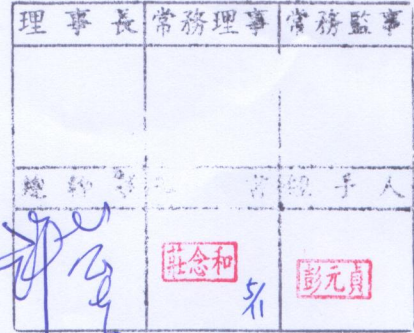 理事長 常務理事 常務監事
總幹事 經手人
莊念和 5/11 彭元貞